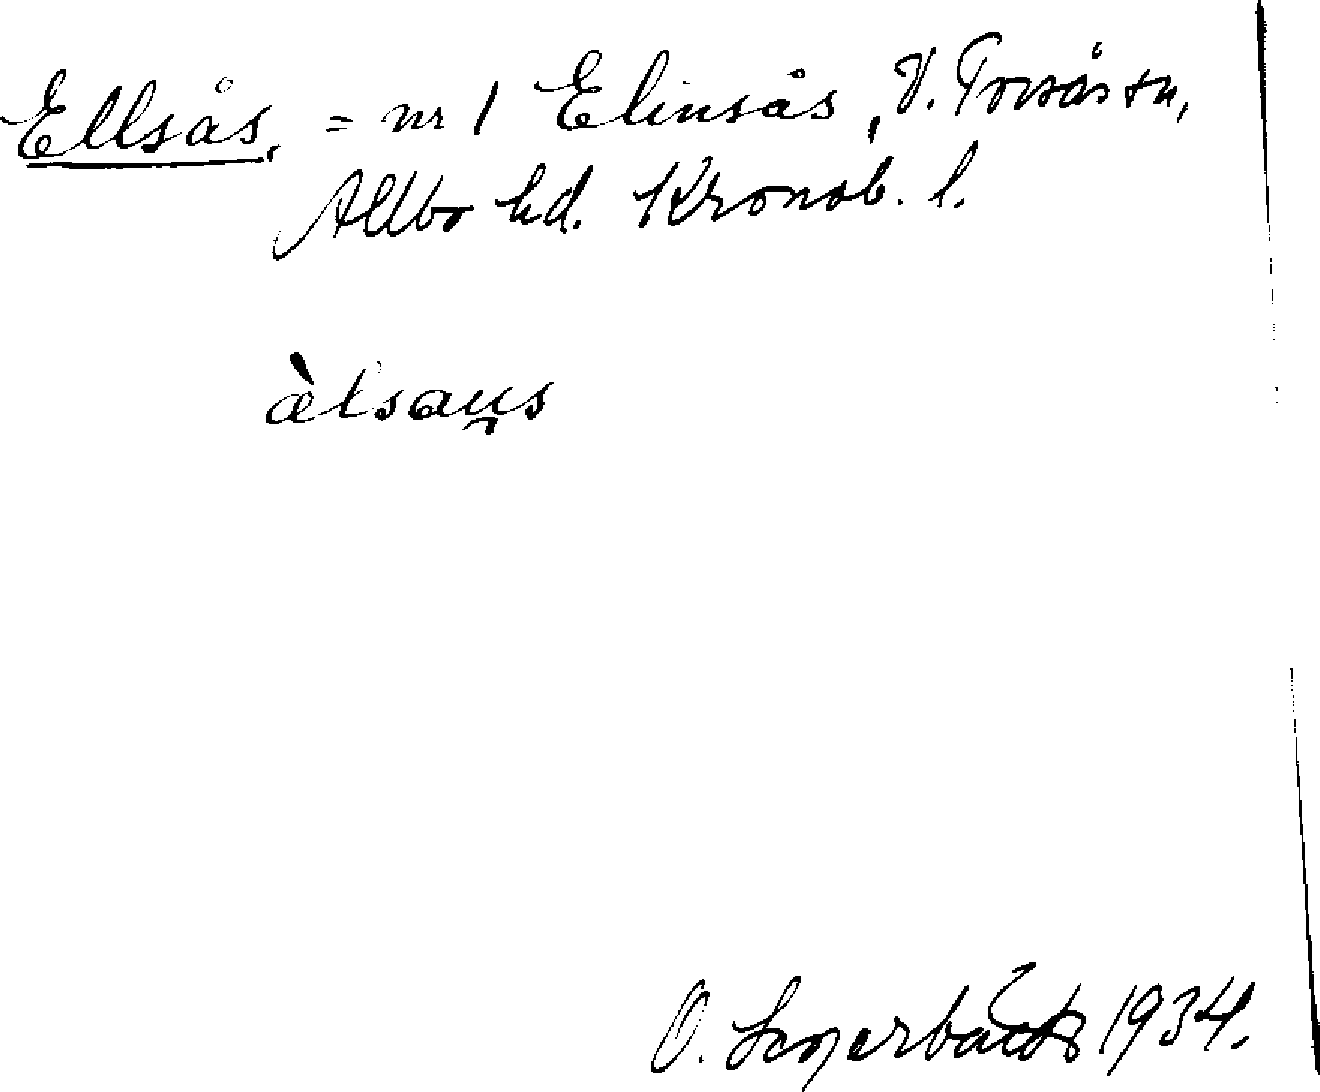 Ellsås, = nr 1 Elinsås, V. Torsås sn,
Allbo hd. Kronob. l.
æ̀lsaųs
O. Lagerbäck 1934.